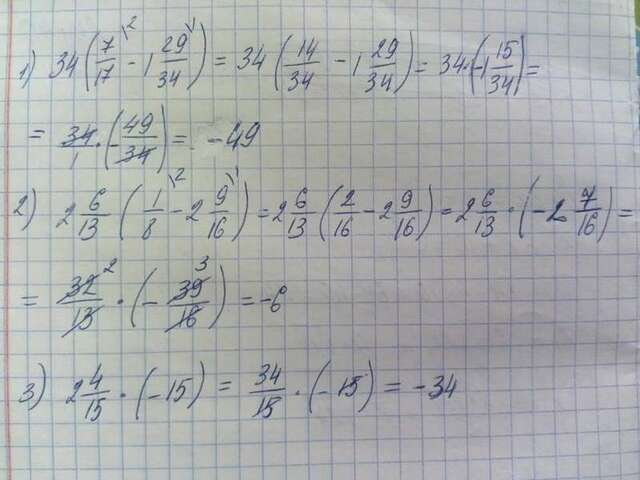 1) 34(7/17\² - 1 29/34\¹) = 34(14/34 - 1 29/34) = 34·(-1 15/34) =
= 34/1 · (-49/34) = -49
2) 2 6/13 (1/8\² - 2 9/16\¹) = 2 6/13 (2/16 - 2 9/16) = 2 6/13 · (-2 7/16) =
= 32²/13 · (-39³/16) = -6
3) 2 4/15 · (-15) = 34/15 · (-15) = -34